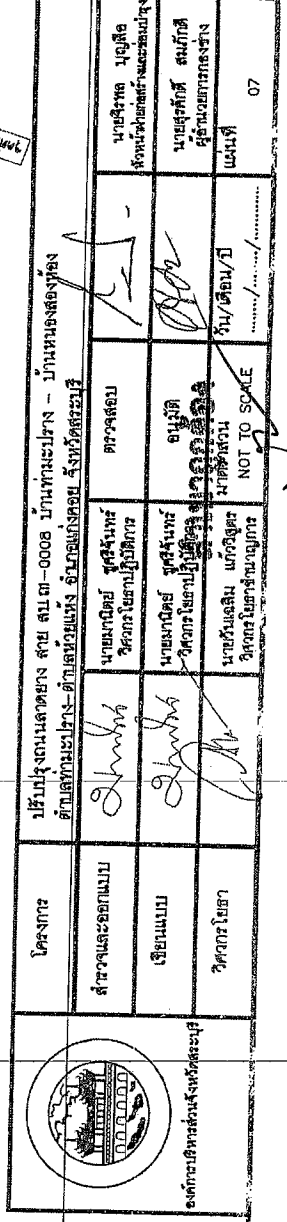 องค์การบริหารส่วนจังหวัดสระบุรี
โครงการ
ปรับปรุงถนนลาดยาง สาย สบ.ถ1-0008 บ้านท่ามะปราง - บ้านหนองสองห้อง
ตำบลท่ามะปราง-ตำบลห้วยแห้ง อำเภอแก่งคอย จังหวัดสระบุรี
สำรวจและออกแบบ
นายมานิตย์ ชูศรีจันทร์
วิศวกรโยธาปฏิบัติการ
ตรวจสอบ
นายจิรพล บุญลือ
หัวหน้าฝ่ายก่อสร้างและซ่อมบำรุง
เขียนแบบ
นายมานิตย์ ชูศรีจันทร์
วิศวกรโยธาปฏิบัติการ
อนุมัติ
นายสุรศักดิ์ สมภักดี
ผู้อำนวยการกองช่าง
วิศวกรโยธา
นายวันเฉลิม แก้ววิสูตร
วิศวกรโยธาชำนาญการ
มาตราส่วน
NOT TO SCALE
วัน/เดือน/ปี
......../......../............
แผ่นที่
07